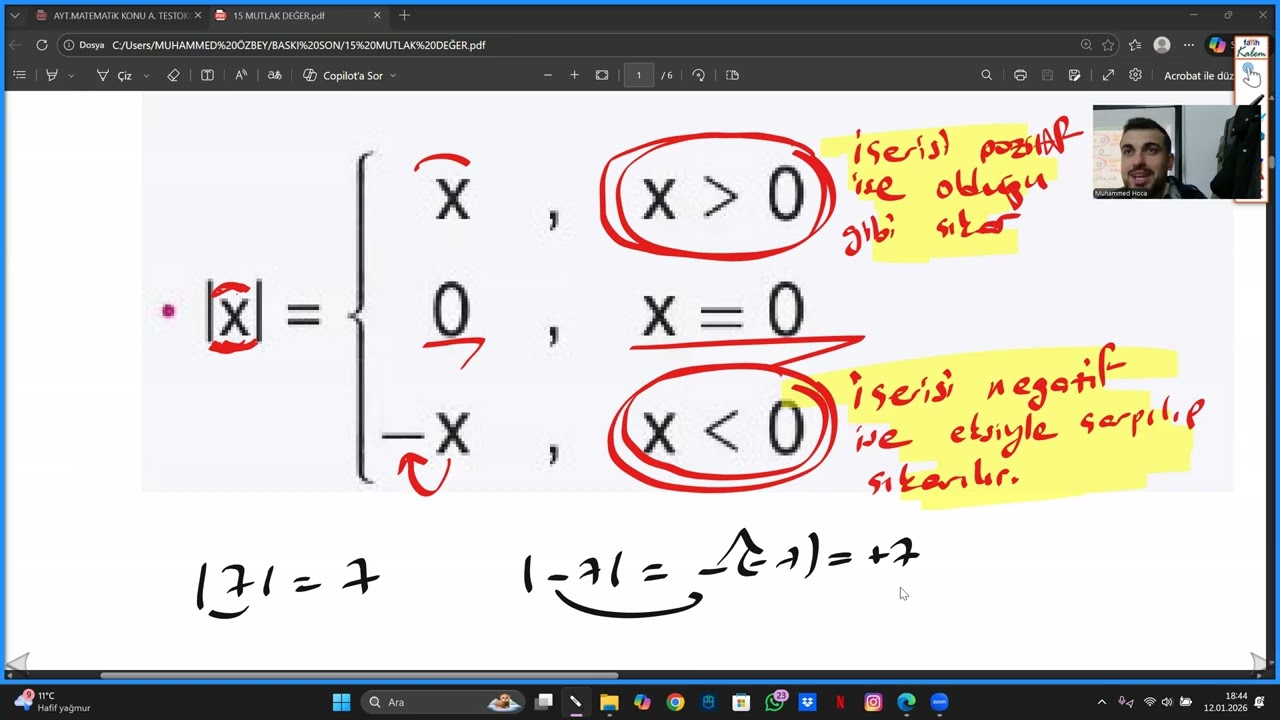 AYT.MATEMATİK KONU A. TESTOK
15 MUTLAK DEĞER.pdf
Dosya
C:/Users/MUHAMMED%20ÖZBEY/BASKI%20SON/15%20MUTLAK%20DEĞER.pdf
Çiz
Copilot'a Sor
1 / 6
Acrobat ile düz
fatih
Kalem
Muhammed Hoca
x , x > 0
içerisi pozitif
ise olduğu
gibi çıkar
|x| =
0 , x = 0
-x , x < 0
içerisi negatif
ise eksiyle çarpılıp
çıkarılır.
|7| = 7
|-7| = -(-7) = +7
9
11°C
Hafif yağmur
Ara
23
zoom
18:44
12.01.2026